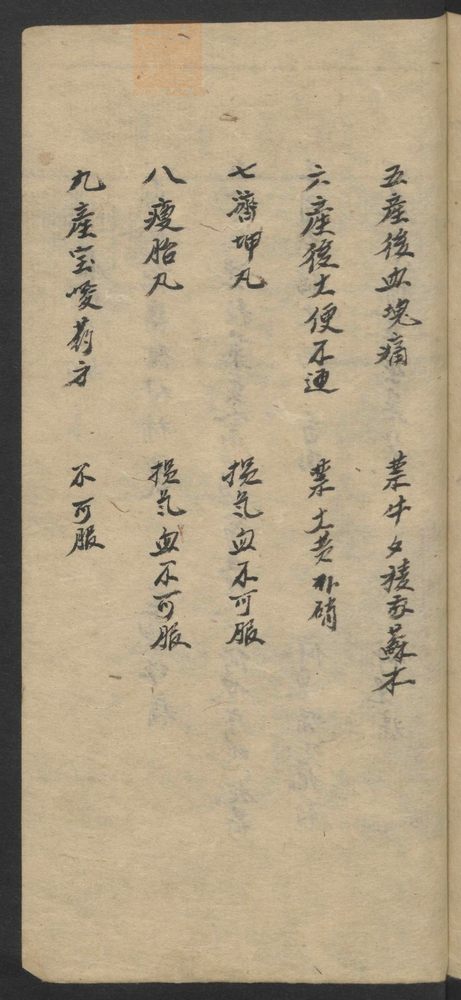 五產後血塊痛 禁牛夕稜莪蘇木
六產後大便不通 禁大黄朴硝
七濟坤丸 損氣血不可服
八瘦胎丸 損氣血不可服
九產宝方 不可服